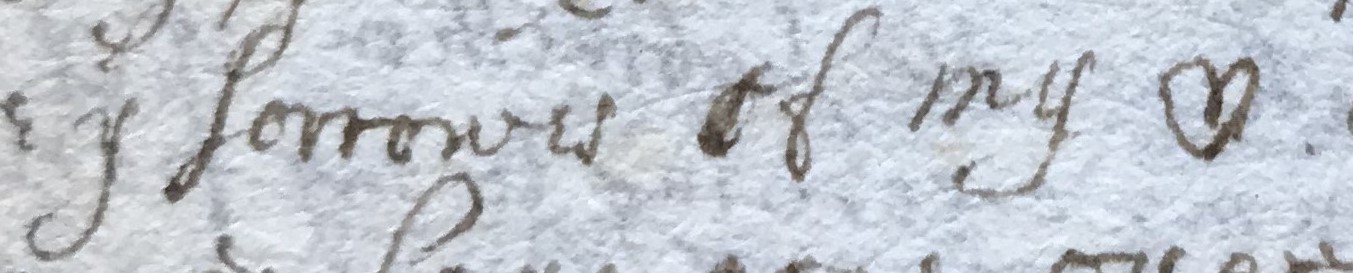 y sorrowes of my ♡